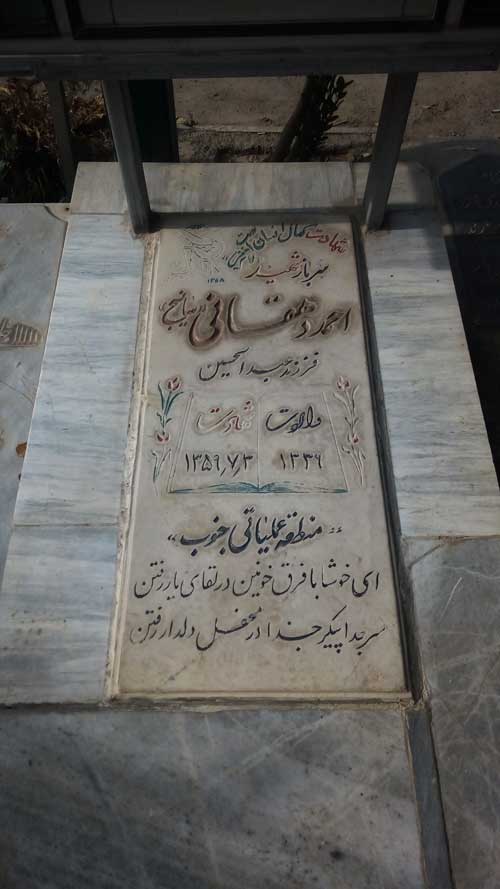 شهادت کمال انسان است
سرباز شهید
۱۳۵۸
احمد دهقانی
فرزند عبدالحسین
ولادت شهادت
۱۳۳۶ ۱۳۵۹٫۷٫۳
"منطقه عملیاتی جنوب"
ای خوشا با فرق خونین در لقای یار رفتن
سر جدا پیکر جدا در محفل دلدار رفتن